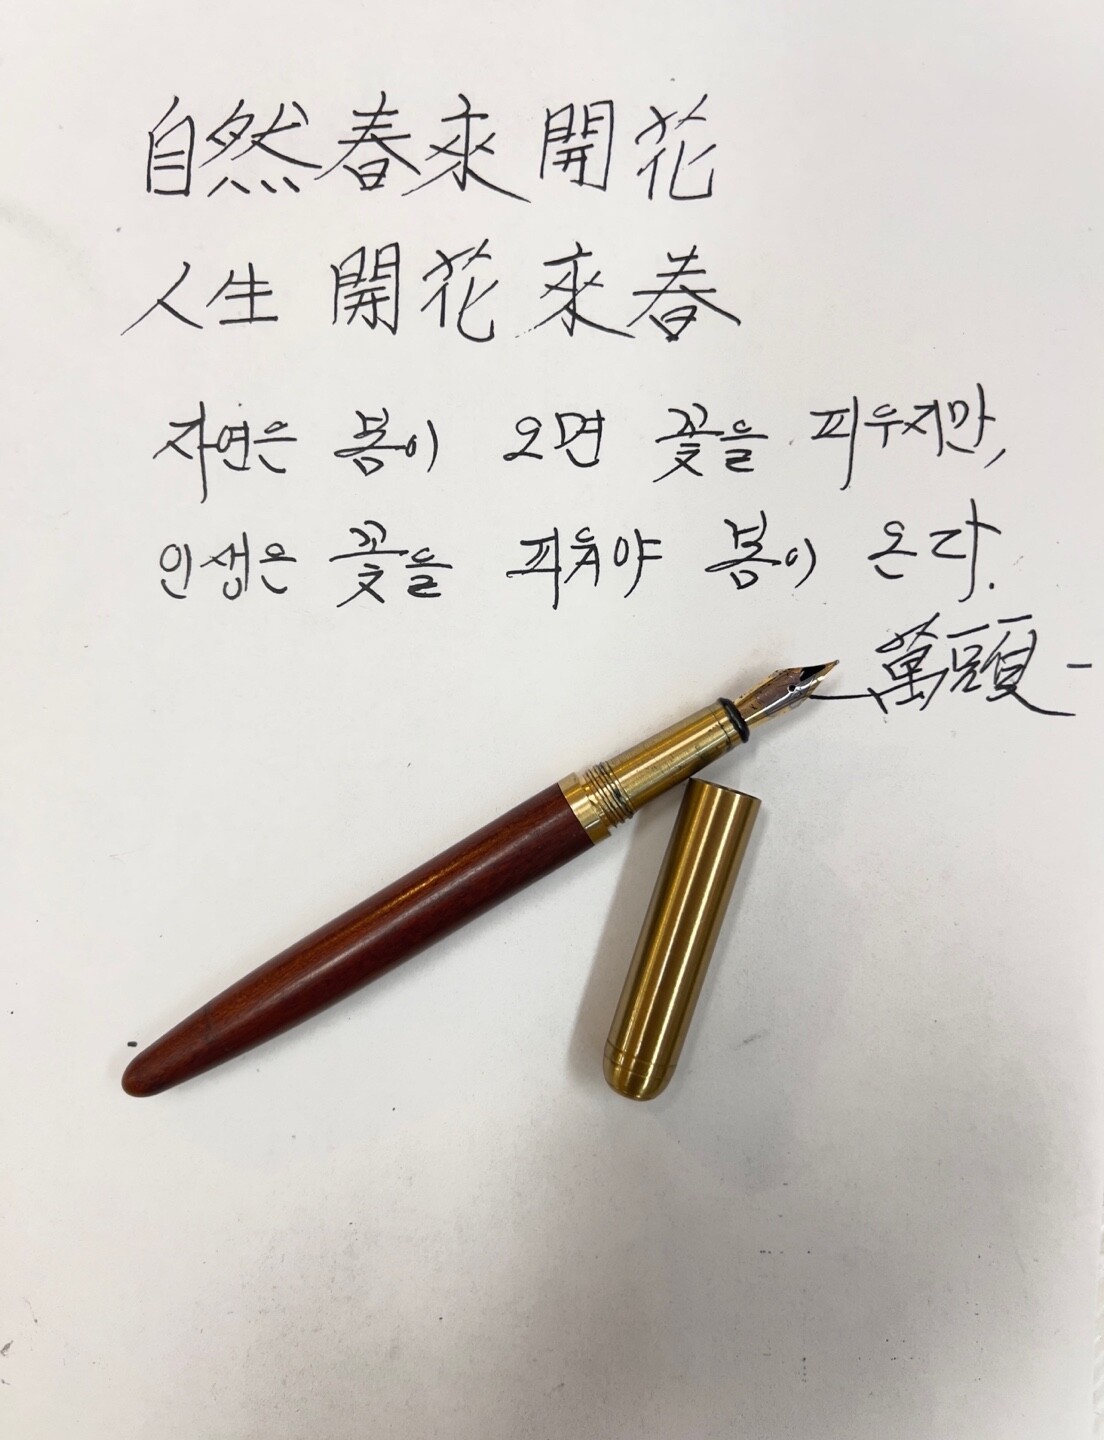 自然 春來 開花
人生 開花 來春
자연은 봄이 오면 꽃을 피우지만,
인생은 꽃을 피워야 봄이 온다.
萬頭